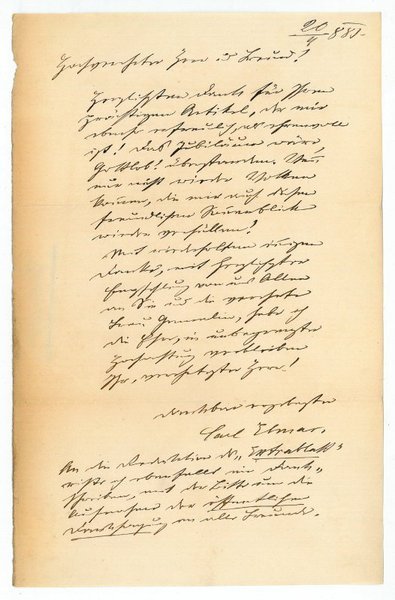 20/4 881.
Hochverehrter Herr und Freund!
Herzlichsten Dank für Ihren
Artikel, der mir
ebenso erfreulich, als ehrenvoll
ist! Das Jubiläum wäre,
Gottlob! überstanden. Wenn
nur nicht wieder Wolken
kommen, die mir auch diesen
freundlichen Sonnenblick
wieder verhüllen!
Mit wiederholtem innigen
Danke, mit herzlichster
Empfehlung von uns Allen
an Sie und die verehrte
Frau Gemahlin, habe ich
die Ehre, in unbegrenzter
Hochachtung verbleiben
Ihr, verehrtester Herr!
dankbar ergebenster
Carl Elmar.
An die Redaktion des "Extrablatt"
richte ich ebenfalls ein Dank-
schreiben, mit der Bitte um die
Aufnahme der öffentlichen
Danksagung an alle Freunde.